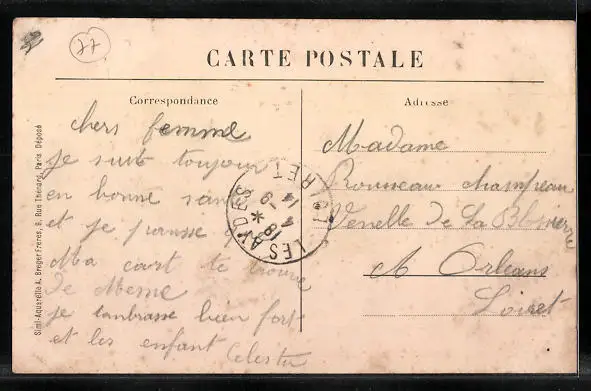 77
CARTE POSTALE
Correspondance
Adresse
chers femme
je suit toujour
en bonne san
et je pansse
Ma cart te trouve
de Meme
je lanbrasse bien fort
et les enfant Celestin
Madame
Rousseau champeau
Venelle de La
A Orleans
Loiret
LES AYDES
LOIRET
18 * 9
4 14
Simi-Aquarelle A. Breger Frères, 9, Rue Thénard, Paris Déposé